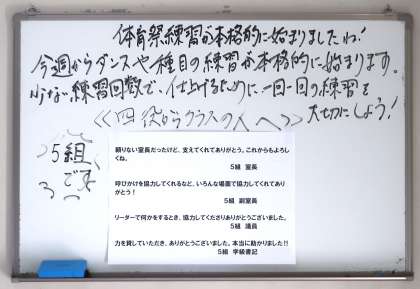 体育祭練習が本格的に始まりましたね!
今週からダンスや種目の練習が本格的に始まります。
少ない練習回数で、仕上げるために、一回一回の練習を
大切にしよう!
<<四役からクラスの人へ>>
5組
です
頼りない室長だったけど、支えてくれてありがとう。これからもよろしくね。
5組 室長
呼びかけを協力してくれるなど、いろんな場面で協力してくれてありがとう!
5組 副室長
リーダーで何かをするとき、協力してくださりありがとうございました。
5組 議員
力を貸していただき、ありがとうございました。本当に助かりました!!
5組 学級書記